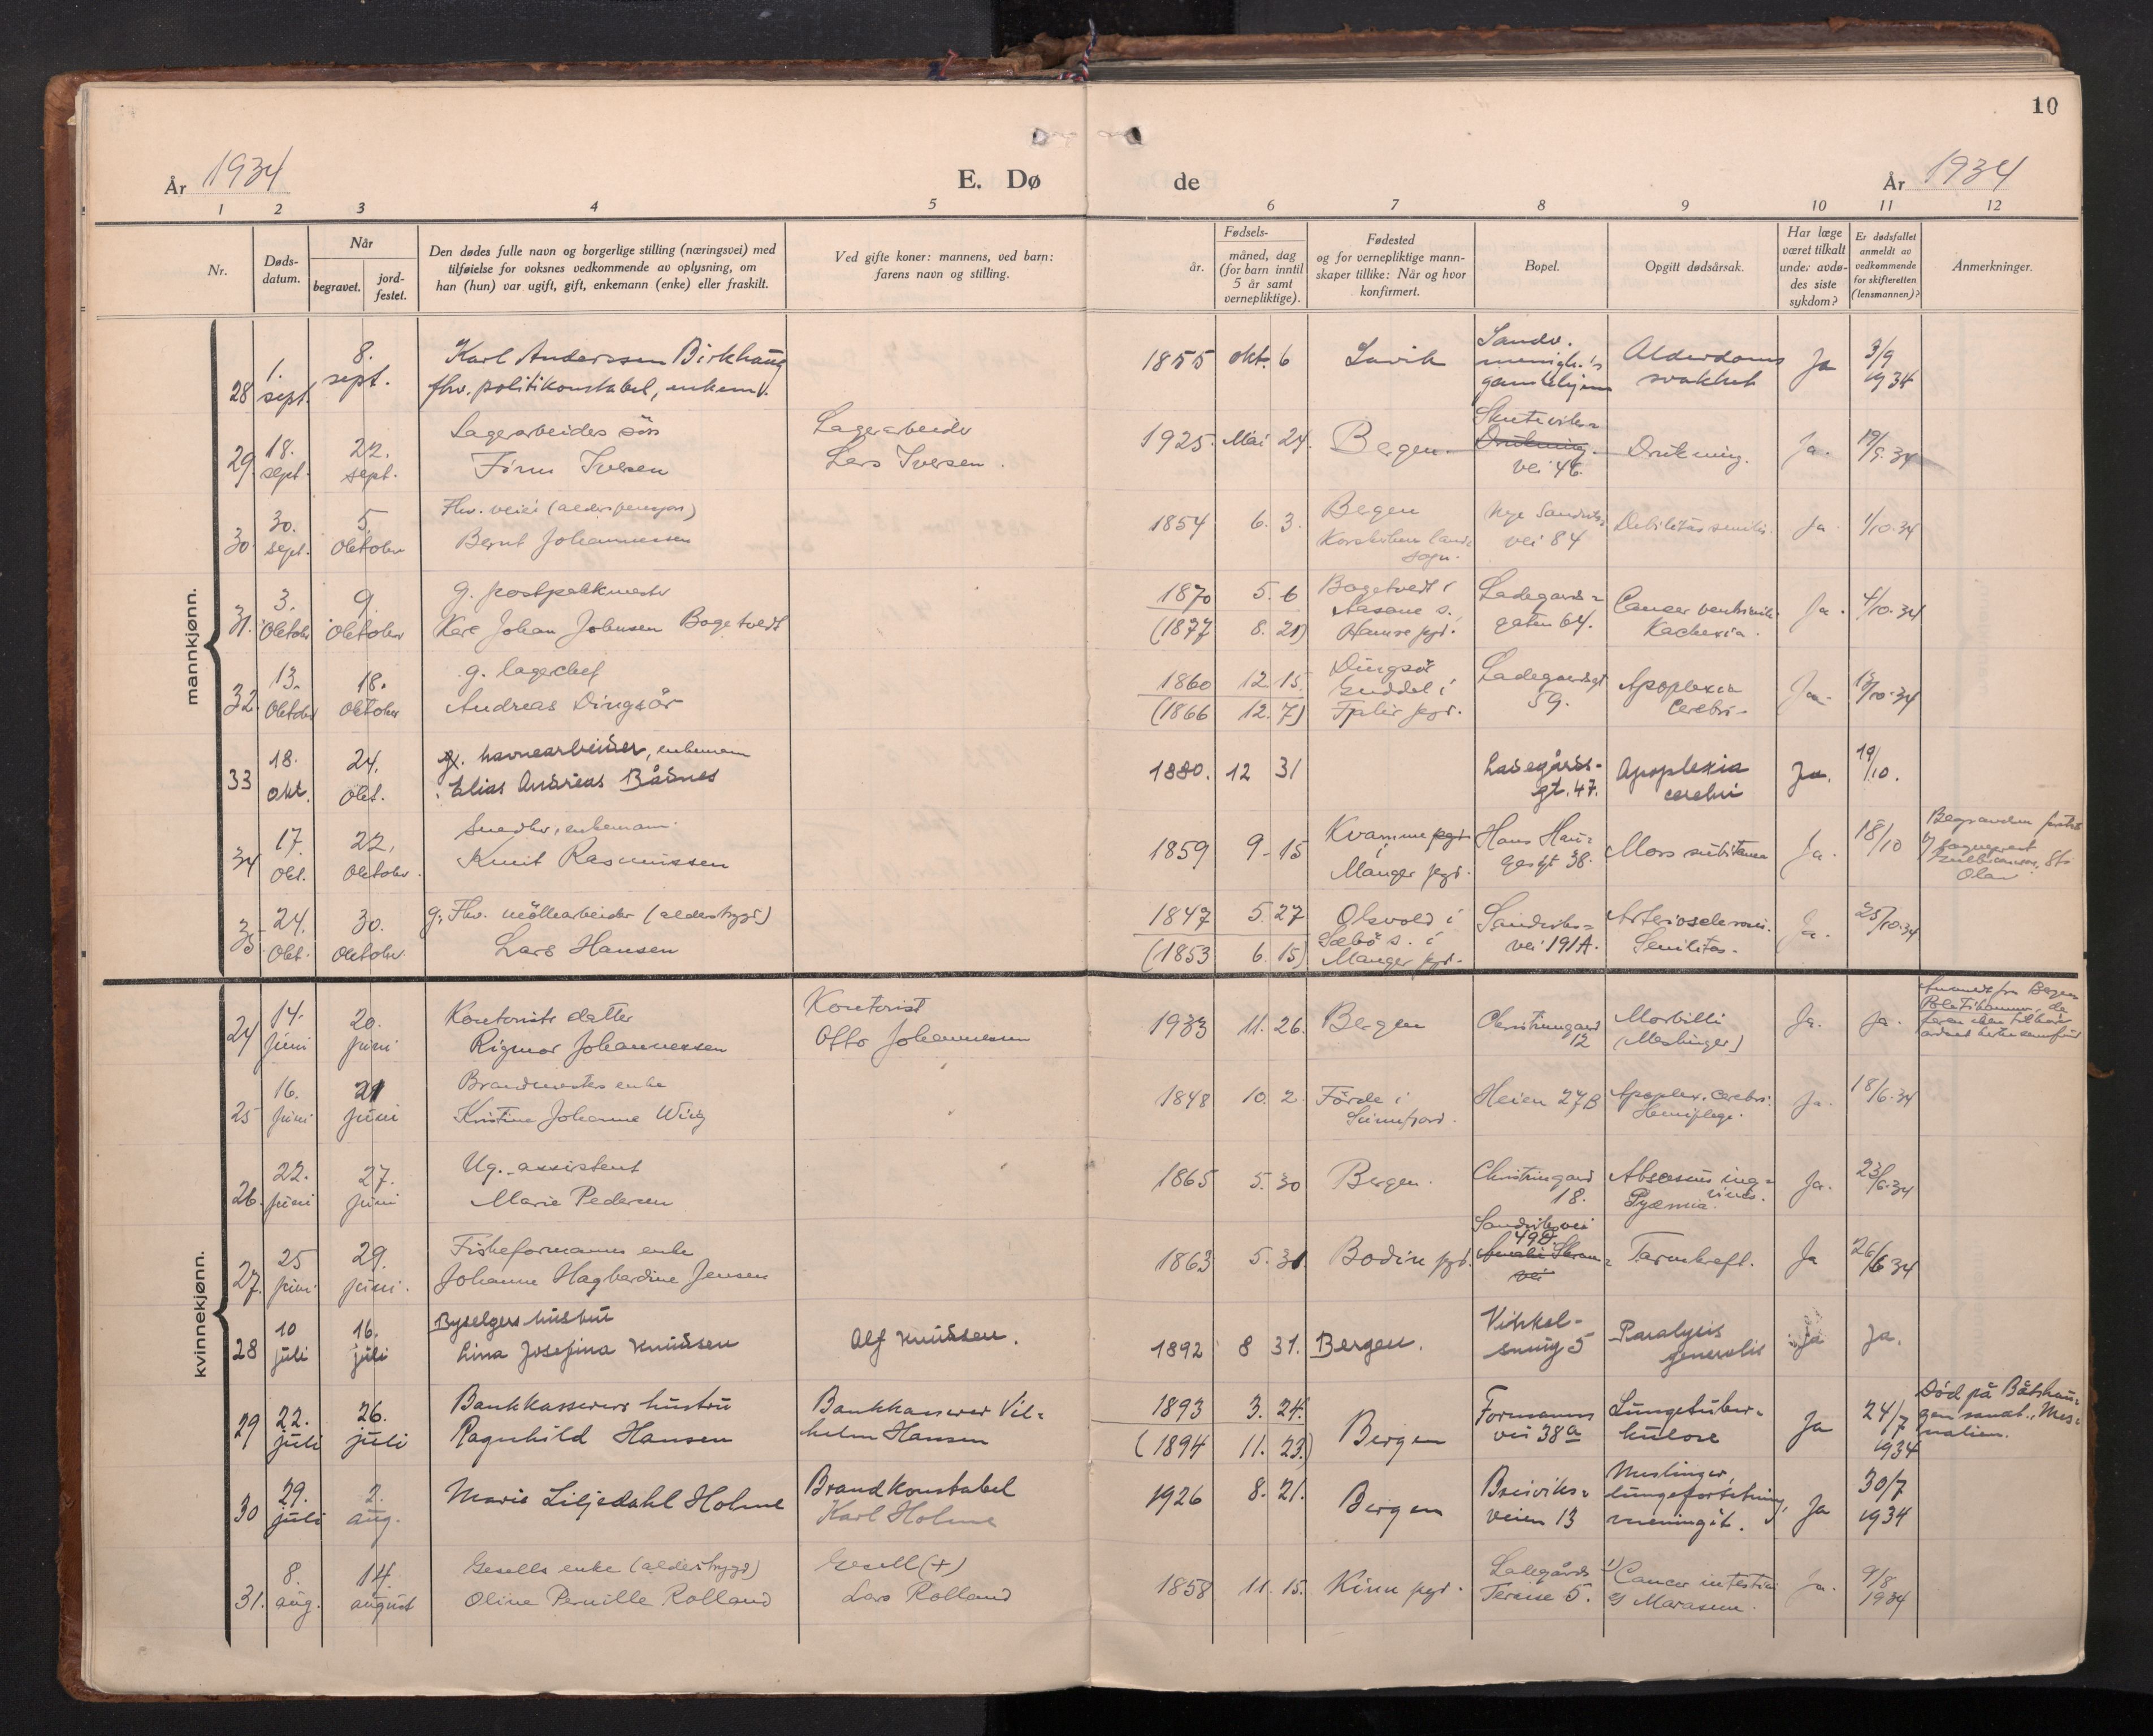 10
År 1934
E. Dø de
År 1934
1 2 3 4 5 6 7 8 9 10 11 12
Nr.
Døds-
datum.
Når
begravet.
jord-
festet.
Den dødes fulle navn og borgerlige stilling (næringsvei) med
tilføielse for voksnes vedkommende av oplysning, om
han (hun) var ugift, gift, enkemann (enke) eller fraskilt.
Ved gifte koner: mannens, ved barn:
farens navn og stilling.
Fødsels-
år.
måned, dag
(for barn inntil
5 år samt
vernepliktige).
Fødested
og for vernepliktige mann-
skaper tillike: Når og hvor
konfirmert.
Bopel.
Opgitt dødsårsak.
Har læge
været tilkalt
under avdø-
des siste
sykdom?
Er dødsfallet
anmeldt av
vedkommende
for skifteretten
(lensmannen)?
Anmerkninger.
mannkjønn.
28 1. sept. 8. sept.
Karl Anderssen Birkhaug
fhv. politikonstabel, enkem.
1855 okt. 6 Lavik
Sandv.
menigh.'s
gamlehjem
Alderdoms
svakhet
Ja 3/9 1934
29 18. sept. 22. sept.
Lagerarbeides søn
Iversen
Lagerarbeider
Lars Iversen.
1925. Mai 24. Bergen.
Skuteviks-
Drukning.
vei 46.
Drukning.
Ja. 19/9.34
30. 30. sept. 5. Oktober
Fhv. (alderspensjon)
Bernt Johannessen
1854 6. 3.
Bergen
Korskirken lands
sogn.
Nye Sandviks-
vei 84
Debilitas senilis.
Ja. 1/10.34
31. 3. Oktober 9. Oktober
g. postpakkmester
Kare Johan Johnsen Bogetvedt
1870 5. 6
(1877 8. 21)
Bogetvedt i
Aasane s.
Hamre pgd.
Ladegards-
gaten 64.
Cancer ventriculi
Kachexia.
Ja. 4/10.34
32. 13. Oktober 18. Oktober
g. lagerchef
Andreas Dingsør
1860 12. 15.
(1866 12. 7)
Dingsør
Guddal i
Fjaler pgd.
Ladegaardsgt
59.
Apoplexia
Cerebri.
Ja. 15/10.34
33 18. okt. 24. okt.
havnearbeider, enkemann
Elias Andreas Bådnes
1880. 12 31
Ladegårds-
gt. 47.
Apoplexia
cerebri
Ja. 19/10.
34 17. Okt. 22. Oktober
Snedker, enkemann.
Knut Rasmussen
1859 9-15
Kvamme pgd.
i
Manger pgd.
Hans Hau-
gesgt 38.
Mors subitanea
Ja. 18/10
Olav
35. 24. Okt. 30. Oktober
g. Fhv. møllearbeider (alderstrygd)
Lars Hansen
1847 5. 27
(1853 6. 15)
Olsvold i
Sæbø s. i
Manger pgd.
Sandviks-
vei 191A.
Arteriosclerosis.
Senilitas.
Ja. 25/10.34
kvinnekjønn.
24 14. juni 20. juni
Kontorists datter
Rigmor Johannessen
Kontorist
Otto Johannessen
1933 11. 26. Bergen
Christinegard
12
Morbilli
(Meslinger)
Ja. Ja.
25 16. juni 21 juni
Brandmesters enke
Kristine Johanne Wiig
1848 10. 2.
Förde i
Sunnfjord.
Heien 27B
Apoplex. cerebri.
Hemiplegi.
Ja. 18/6.34
26. 22. juni 27. juni
Ug. assistent
Marie Pedersen
1865 5. 30 Bergen.
Christinegard
18.
Abscessus ing-
vinis.
Pyæmia.
Ja. 23/6.34
27. 25 juni 29. juni.
Fiskeformanns enke
Johanne Hagbardine Jensen
1863 5. 31 Bodin pgd.
Sandviksvei
49D.
Amalie Skram-
vei
Tarmkreft.
Ja 26/6 34
28 10 juli 16. juli
Byselgers hustru
Lina Josefina Knudsen
Alf Knudsen.
1892 8 31. Bergen.
5
Paralysis
generalis
Ja Ja.
29 22. juli 26. juli
Bankkasserers hustru
Ragnhild Hansen
Bankkasserer Vil-
helm Hansen
1893 3. 24.
(1894 11. 23.)
Bergen
Formanns
vei 38a
Lungetuber-
kulose
Ja 24/7 1934
Död på
Mes-
nalien.
30 29. juli 2. aug.
Marie Liljedahl Holme
Brandkonstabel
Karl Holme
1926 8. 21. Bergen
Breiviks-
veien 13
Meslinger,
meningit.
Ja 30/7 1934
31. 8. aug. 14. august
Gesells enke (alderstrygd)
Oline Pernille Rolland
Gesell (+)
Lars Rolland
1858 11. 15. Kinn pgd.
Ladegårds
Terasse 5.
1) Cancer intestini
2) Marasmus.
Ja. 9/8 1934